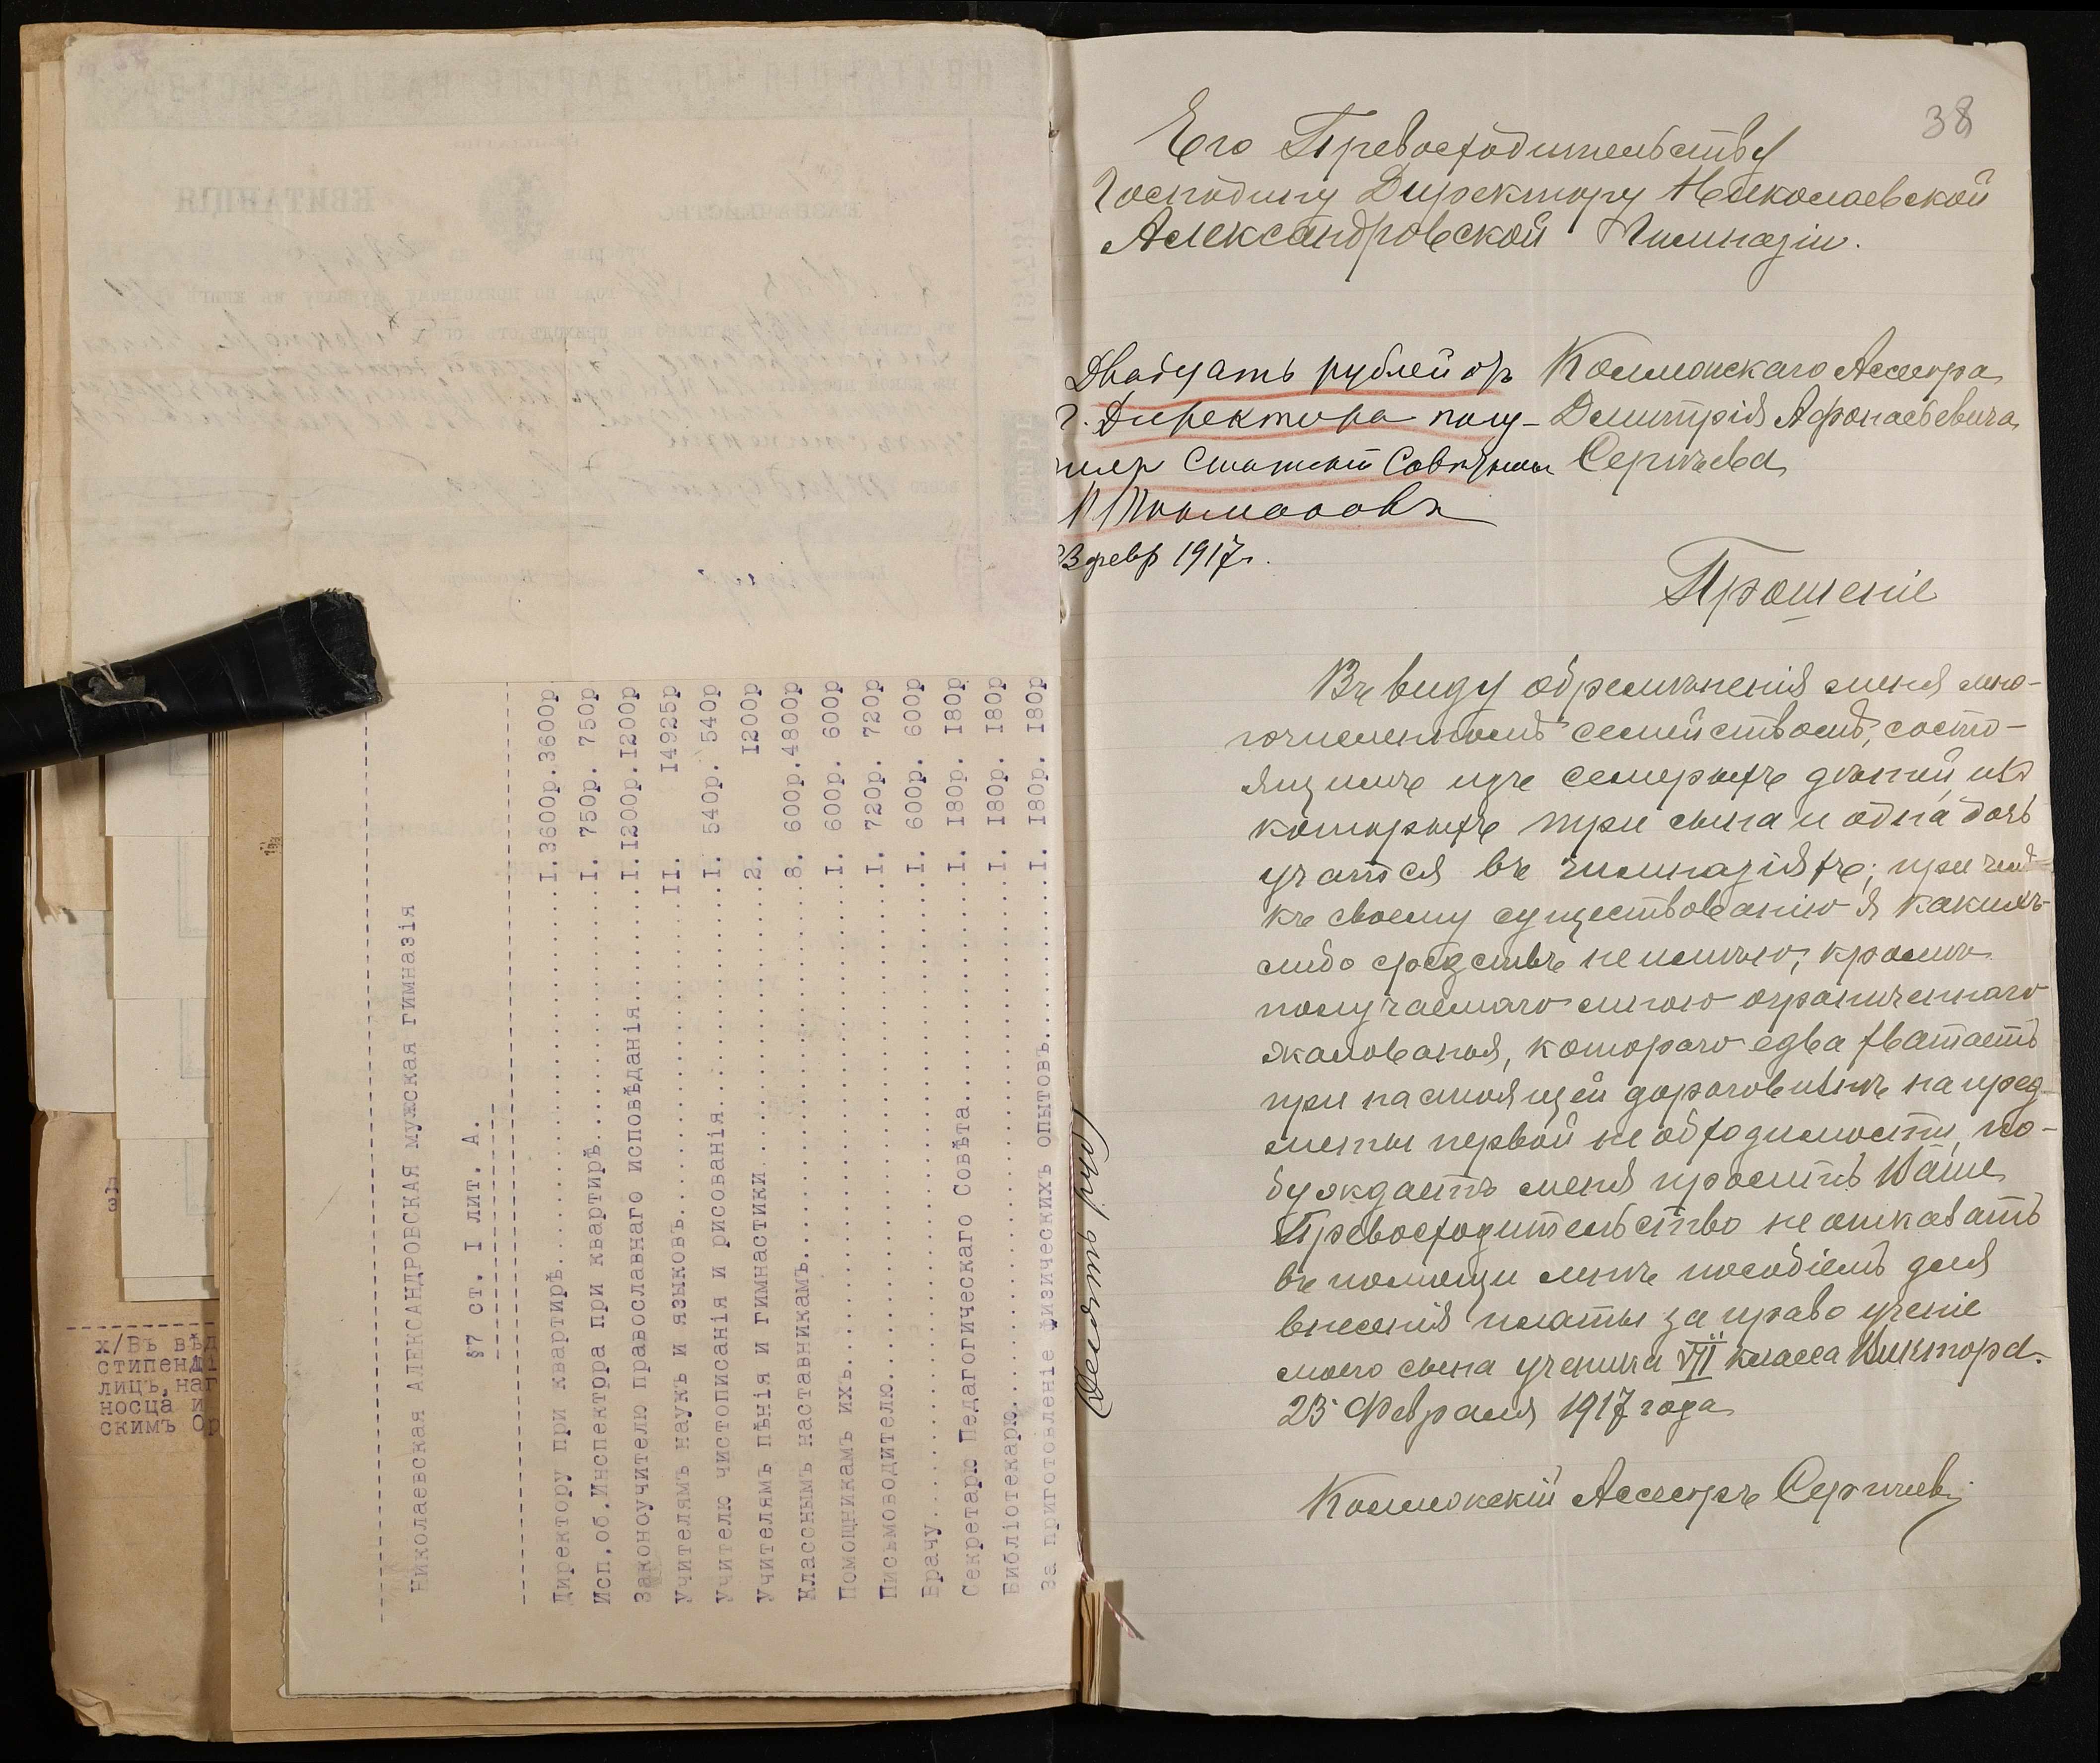 НИКОЛАЕВСКАЯ АЛЕКСАНДРОВСКАЯ мужская гимназія
§7 ст. I лит. А.
Директору при квартирѣ.....I.3600р.3600р
Исп.об.Инспектора при квартирѣ.....I. 750р. 750р
Законоучителю православнаго исповѣданія.....I.1200р.1200р
Учителямъ наукъ и языковъ.....II. 14925р
Учителю чистописанія и рисованія.....I. 540р. 540р
Учителямъ пѣнія и гимнастики.....2. 1200р
Класснымъ наставникамъ.....8. 600р.4800р
Помощникамъ ихъ.....I. 600р. 600р
Письмоводителю.....I. 720р. 720р
Врачу.....I. 600р. 600р
Секретарю Педагогическаго Совѣта.....I. 180р. 180р
Библіотекарю.....I. 180р. 180р
За приготовленіе физическихъ опытовъ.....I. 180р. 180р
х/Въ вѣд
стипенді
лицъ, наг
носца и
скимъ Ор
КВИТАНЦІЯ
38
Его Превосходительству
Господину Директору Николаевской
Александровской Гимназіи.
Двадцать рублей отъ
г. Директора полу-
Статскій Совѣтникъ
23 февр 1917г.
Коллежскаго Ассесора
Димитрія Афонасьевича
Сергѣева
Прошеніе
Въ виду обремѣненія меня мно-
гочисленнымъ семействомъ, состо-
ящимъ изъ семерыхъ дѣтей, изъ
которыхъ три сына и одна дочь
учатся въ гимназіяхъ; при чемъ
къ своему существованію я какихъ-
либо средствъ не имѣю, кромѣ
получаемаго мною ограниченнаго
жалованья, котораго едва хватаетъ
при настоящей дороговизнѣ на пред-
меты первой необходимости, по-
буждаетъ меня просить Ваше
Превосходительство не отказать
въ помощи мнѣ пособіемъ для
внесенія платы за право ученіе
моего сына ученика VII класса Виктора.
23 Февраля 1917 года
Коллежскій Ассесоръ Сергѣевъ